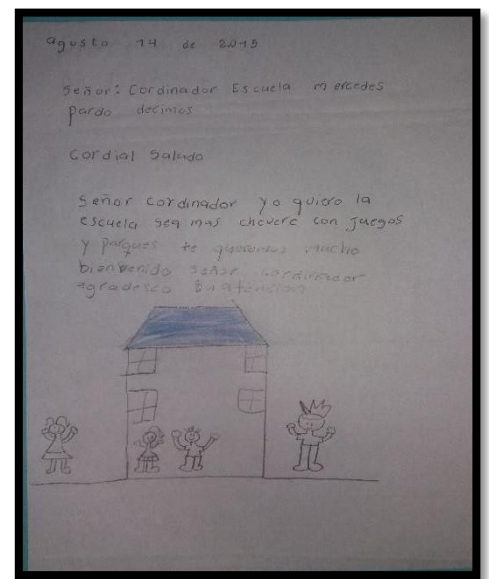 agosto 14 de 2015
Señor: Cordinador Escuela mercedes
pardo decimos
Cordial Saludo
Señor cordinador yo quiero la
escuela sea mas chevere con juegos
y parques te queremos mucho
bienvenido señor cordinador
agradesco su atencion